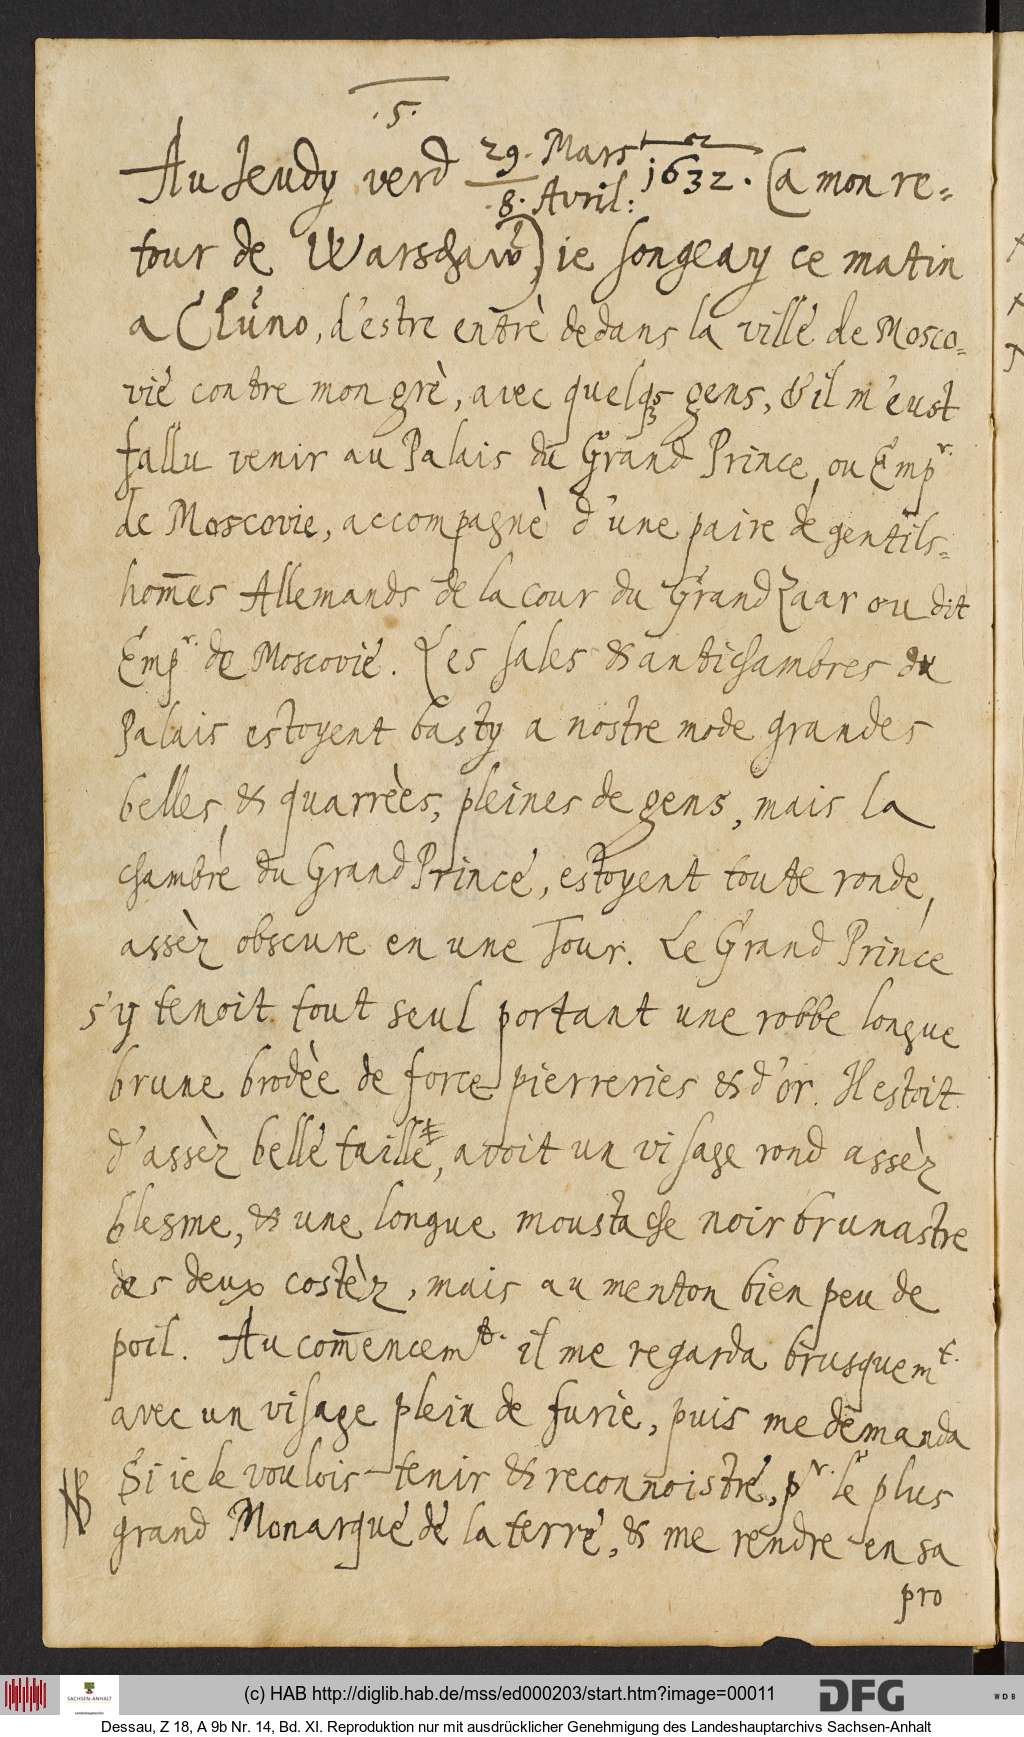 .5.
Au Jeudy verd 29. Mars / 8. Avril: 1632. (a mon re=
tour de Warschaw) ie songeay ce matin
a Clüno, d'estre entrè dedans la ville de Mosco=
vie contre mon grè, avec quelqs gens, & il m'eust
fallu venir au Palais du Grand Prince, ou Empr.
de Moscovie, accompagnè d'une paire de gentils=
hom̄es Allemands de la cour du Grand Zaar ou dit
Empr. de Moscovie. Les sales & antichambres du
Palais estoyent basty a nostre mode grandes
belles, & quarrèes, pleines de gens, mais la
chambre du Grand Prince, estoyent toute ronde,
assèz obscure en une Tour. Le Grand Prince
s'y tenoit tout seul portant une robbe longue
brune brodèe de force pierreries & d'or. Il estoit
d'assèz belle taille, avoit un visage rond assèz
blesme, & une longue moustache noir brunastre
des deux costèz, mais au menton bien peu de
poil. Au com̄encemt. il me regarda brusquemt.
avec un visage plein de furie, puis me demanda
Si ie le voulois tenir & reconnoistre, pr. le plus
NB
grand Monarque de la terre, & me rendre en sa
pro
SACHSEN-ANHALT
(c) HAB http://diglib.hab.de/mss/ed000203/start.htm?image=00011
DFG
WDB
Dessau, Z 18, A 9b Nr. 14, Bd. XI. Reproduktion nur mit ausdrücklicher Genehmigung des Landeshauptarchivs Sachsen-Anhalt